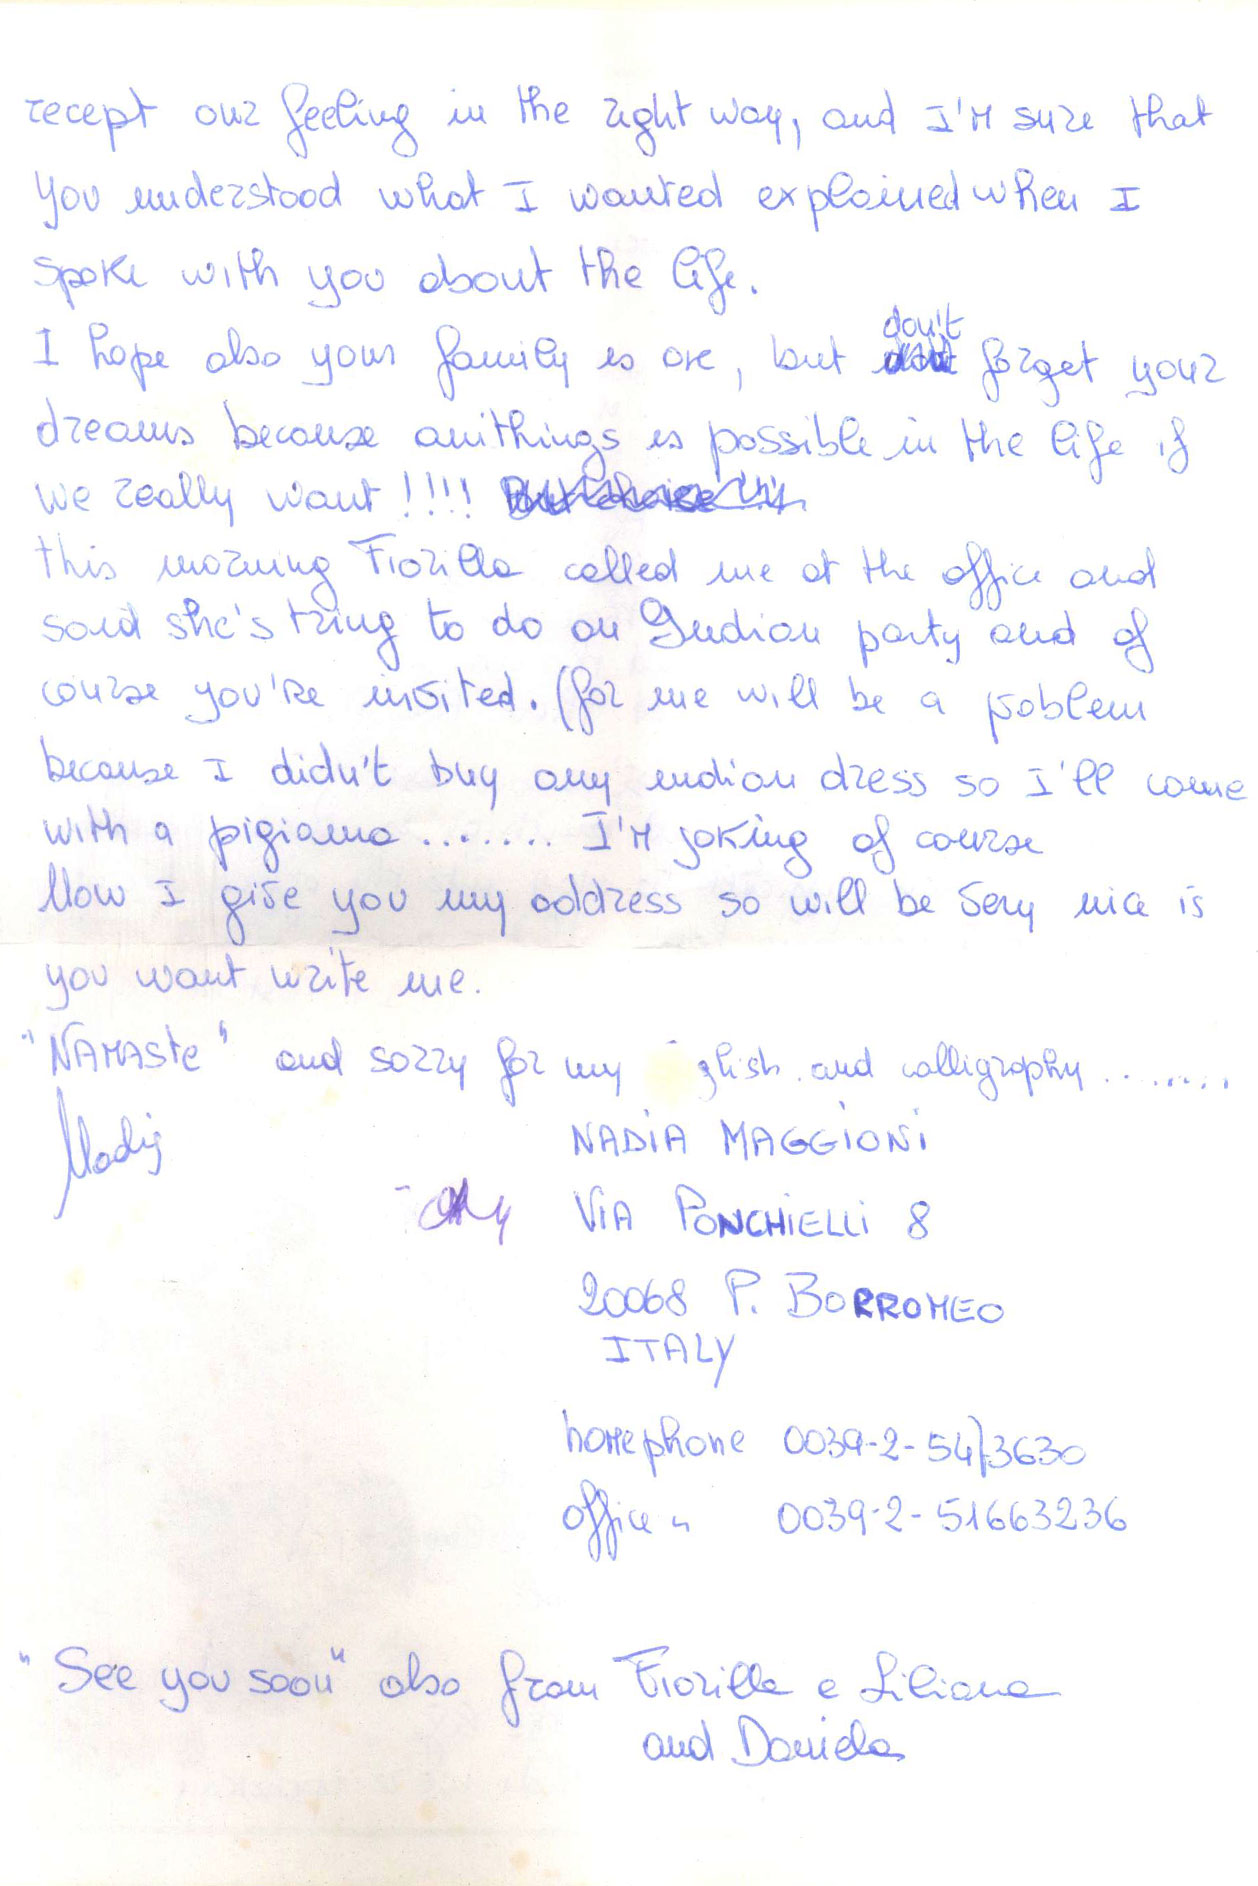 recept our feeling in the right way, and I'M sure that
you understood what I wanted explained when I
spoke with you about the life.
I hope also your family is ok, but don't forget your
dreams because anithings is possible in the life if
we really want !!!!
this morning Fiorilla called me at the office and
said she's tring to do an Indian party and of
course you're invited. (for me will be a problem
because I didn't buy any indian dress so I'll come
with a pigiama ....... I'M joking of course
Now I give you my address so will be very nice is
you want write me.
"NAMASte" and sorry for my glish and calligraphy ........
Nadia
NADIA MAGGIONI
VIA PONCHIELLI 8
20068 P. BORROMEO
ITALY
homephone 0039-2-54 3630
office " 0039-2-51663236
"See you soon" also from Fiorilla e Liliana
and Daniela